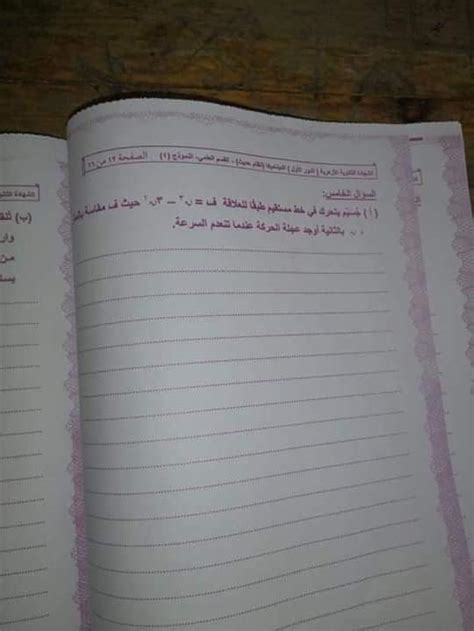 الشهادة الثانوية الأزهرية ( الدور الأول ) الديناميكا (نظام حديث) - القسم العلمي- النموذج (٤) الصفحة ١٢ من ١٦
السؤال الخامس:
( أ ) جُسَيْم يتحرك في خط مستقيم طبقًا للعلاقة ف = ن٣ − ٣ن٢ حيث ف مقاسة
، ن بالثانية أوجد عجلة الحركة عندما تنعدم السرعة.
(ب)
من